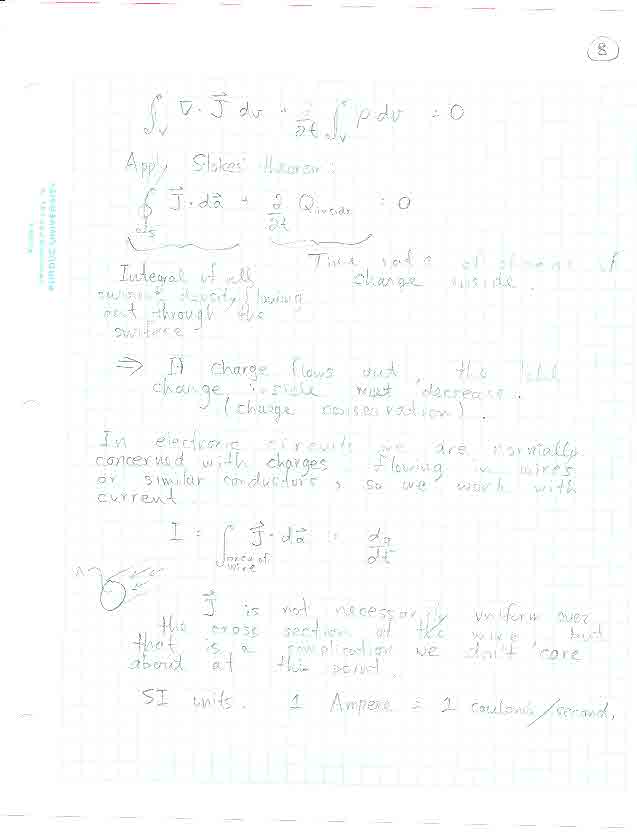 8
∫_V ∇·J⃗ dv + ∂/∂t ∫_V ρ dv = 0
Apply Stokes' theorem:
∮_S J⃗·da⃗ + ∂/∂t Q_inside = 0
Integral of all
current density flowing
out through the
surface
Time rate of change of
charge inside.
⇒ If charge flows out, the total
charge inside must decrease.
(charge conservation).
In electronic circuits we are normally
concerned with charges flowing in wires
or similar conductors, so we work with
current
I = ∫_area of wire J⃗·da⃗ = dq/dt
A
J⃗ is not necessarily uniform over
the cross section of the wire, but
that is a complication we don't care
about at this point.
SI units. 1 Ampere ≡ 1 coulomb/second.